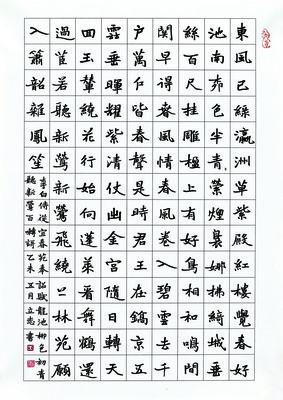 東風已綠瀛洲草紫殿紅樓覺春好
池南柳色半青青縈煙裊娜拂綺城垂
絲百尺挂雕楹上有好鳥相和鳴間
関早得春風情春風卷入碧雲去千
門萬戶皆春聲是時君王在鎬京五
雲垂暉耀紫清仗出金宮隨日轉天
回玉輦繞花行始向蓬萊看舞鶴還
過茝若聽新鶯新鶯飛繞上林苑願
入簫韶雜鳳笙
李白侍從宜春苑奉詔賦龍池柳色初青
聽新鶯百囀詩乙未五月立志書